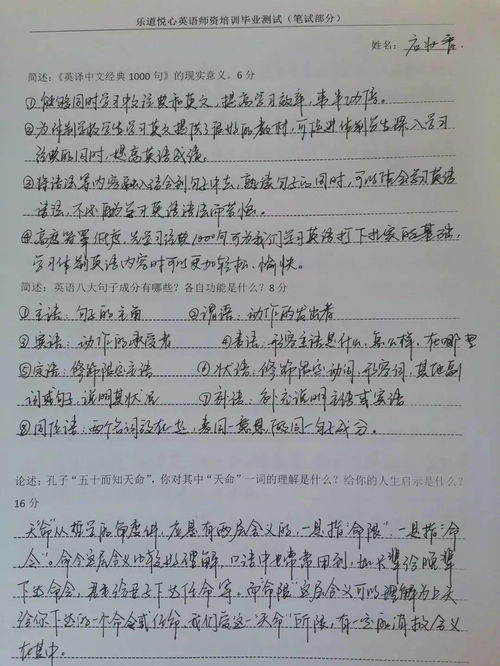 乐道悦心英语师资培训毕业测试（笔试部分）
姓名：
简述：《英译中文经典1000句》的现实意义。6分
①能够同时学习中文经典和英文，提高学习效率，事半功倍。
②为体制学校学生学习英文提供了很好的教材，可促进体制学生深入学习
经典的同时，提高英语成绩。
③将语法等内容融入语句到句子中去，熟读句子的同时，可以体会学习英语
语法，不必再为学习英语语法而苦恼。
④高度签署低度，先学习经典1000句可为我们学习英语打下扎实的基础，
学习体制英语内容时可以更加轻松、愉快。
简述：英语八大句子成分有哪些？各自功能是什么？8分
①主语：句子的主角 ②谓语：动作的发出者
③宾语：动作的承受者 ④表语：形容主语是什么，怎么样，在哪里
⑤定语：修饰限定主语 ⑥状语：修饰限定动词，形容词，其他副
词或句子，说明其状况 ⑦补语：补充说明主语或宾语
⑧同位语：两个名词放在一起，表同一意思，做同一句子成分。
论述：孔子“五十而知天命”，你对其中“天命”一词的理解是什么？给你的人生启示是什么？
16分
“天命”从哲学的角度讲，应是有两层含义的，一是指“命限”，一是指“命
令”。命令这层含义比较好理解，口语中也常常用到，如长辈给晚辈
下达命令，君主给臣子下达任命等。而“命限”这层含义可以理解为上天
给你下达的一个命令或任命，我们受这一“天命”所限，有一定的真救含义
在其中。